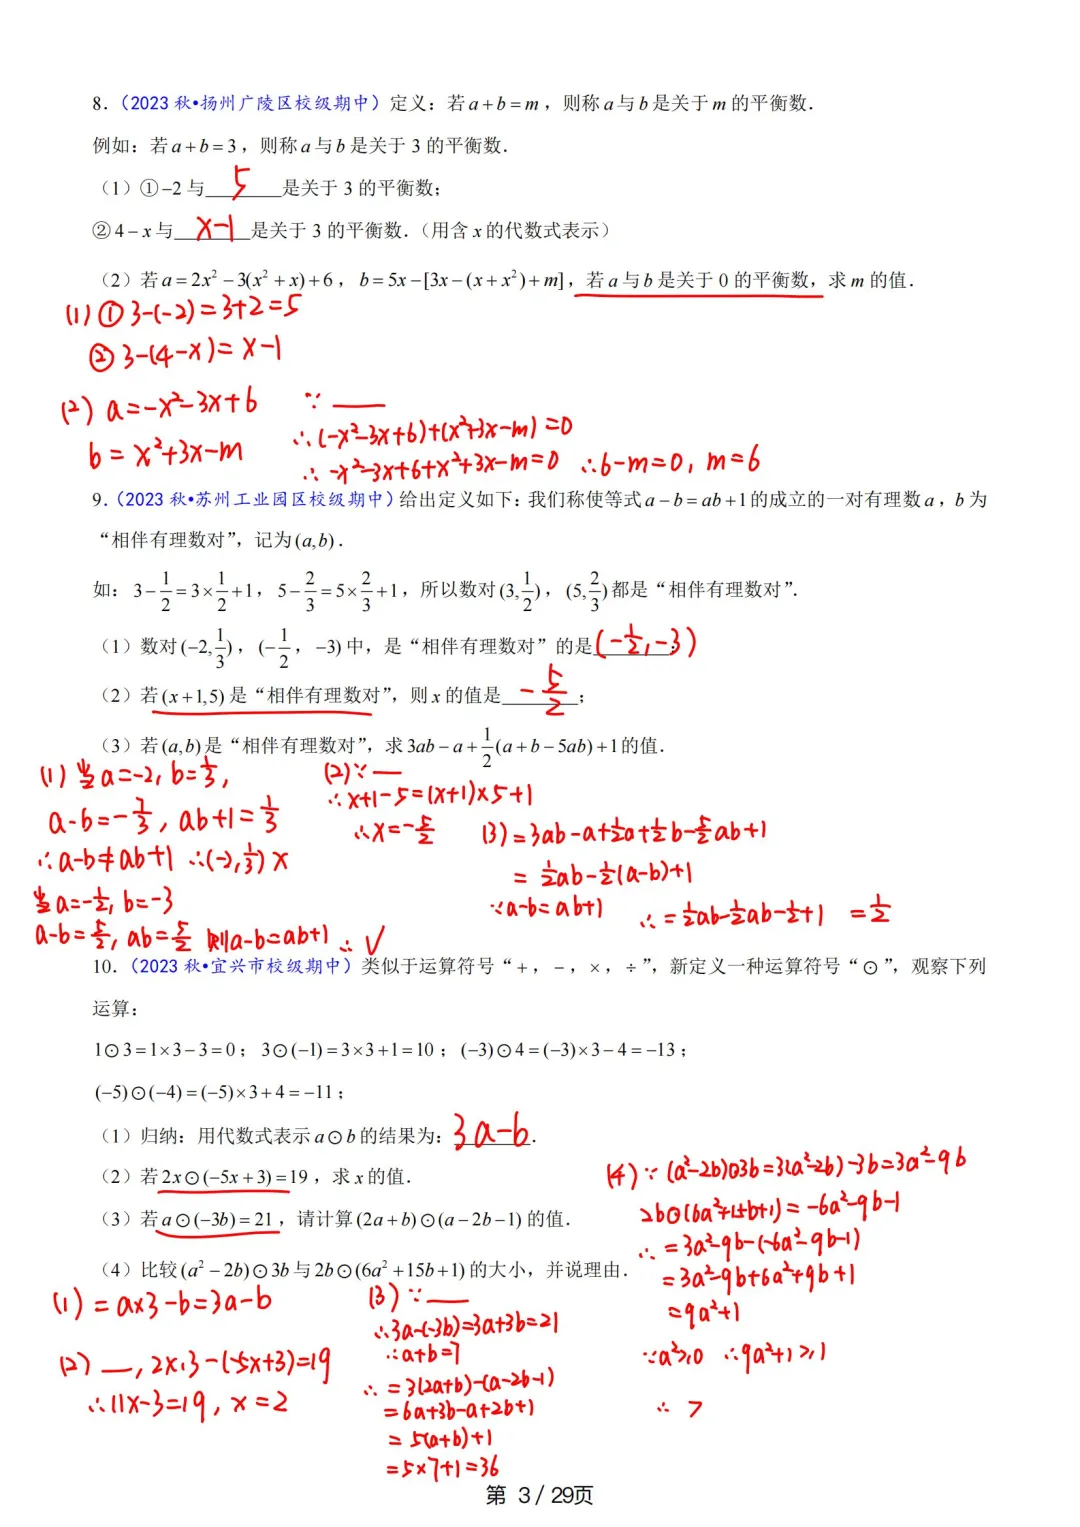 8.（2023 秋•扬州广陵区校级期中）定义：若 a + b = m ，则称 a 与 b 是关于 m 的平衡数．
例如：若 a + b = 3 ，则称 a 与 b 是关于 3 的平衡数．
（1）① −2 与 5 是关于 3 的平衡数；
② 4 − x 与 x-1 是关于 3 的平衡数．（用含 x 的代数式表示）
（2）若 a = 2x² − 3(x² + x) + 6 ， b = 5x − [3x − (x + x²) + m] ，若 a 与 b 是关于 0 的平衡数，求 m 的值．
(1) ① 3-(-2)=3+2=5
② 3-(4-x)= x-1
(2) a=-x²-3x+6 ∵ ——
b = x²+3x-m ∴ (-x²-3x+6)+(x²+3x-m)=0
∴ -x²-3x+6+x²+3x-m=0 ∴6-m=0, m=6
9.（2023 秋•苏州工业园区校级期中）给出定义如下：我们称使等式 a − b = ab + 1 的成立的一对有理数 a ， b 为
“相伴有理数对”，记为 (a,b)．
如： 3 − 1/2 = 3 × 1/2 + 1， 5 − 2/3 = 5 × 2/3 + 1，所以数对 (3, 1/2) ， (5, 2/3) 都是“相伴有理数对”．
（1）数对 (−2, 1/3) ， (−1/2 ， −3) 中，是“相伴有理数对”的是 (-1/2,-3) ；
（2）若 (x + 1,5) 是“相伴有理数对”，则 x 的值是 -5/2 ；
（3）若 (a,b) 是“相伴有理数对”，求 3ab − a + 1/2(a + b − 5ab) + 1 的值．
(1) 当a=-2, b=1/3,
a-b=-7/3, ab+1=1/3
∴a-b≠ab+1 ∴(-2,1/3) ×
当a=-1/2, b=-3
a-b=5/2, ab=5/2 则a-b=ab+1 ∴ √
(2)∵ ——
∴x+1-5=(x+1)×5+1
∴x=-5/2
(3)=3ab-a+1/2a+1/2b-5/2ab+1
= 1/2ab-1/2(a-b)+1
∵a-b=ab+1 ∴=1/2ab-1/2ab-1/2+1 =1/2
10.（2023 秋•宜兴市校级期中）类似于运算符号“ + ， − ， × ， ÷ ”，新定义一种运算符号“ ⊙ ”，观察下列
运算：
1⊙3 = 1×3 − 3 = 0 ； 3⊙(−1) = 3×3 + 1 = 10 ； (−3)⊙4 = (−3)×3 − 4 = −13 ；
(−5)⊙(−4) = (−5)×3 + 4 = −11；
（1）归纳：用代数式表示 a⊙b 的结果为： 3a-b ．
（2）若 2x⊙(−5x + 3) = 19 ，求 x 的值．
（3）若 a⊙(−3b) = 21 ，请计算 (2a + b)⊙(a − 2b − 1) 的值．
（4）比较 (a² − 2b)⊙3b 与 2b⊙(6a² + 15b + 1) 的大小，并说理由．
(1) = a×3-b=3a-b
(2) ——, 2x·3-(-5x+3)=19
∴11x-3=19, x=2
(3) ∵ ——
∴3a-(-3b)=3a+3b=21
∴a+b=7
∴=3(2a+b)-(a-2b-1)
=6a+3b-a+2b+1
= 5(a+b)+1
=5×7+1=36
(4) ∵ (a²-2b)⊙3b=3(a²-2b)-3b=3a²-9b
2b⊙(6a²+15b+1)=-6a²-9b-1
∴ =3a²-9b-(-6a²-9b-1)
=3a²-9b+6a²+9b+1
=9a²+1
∵a²≥0 ∴9a²+1≥1
∴ >
第 3 / 29页